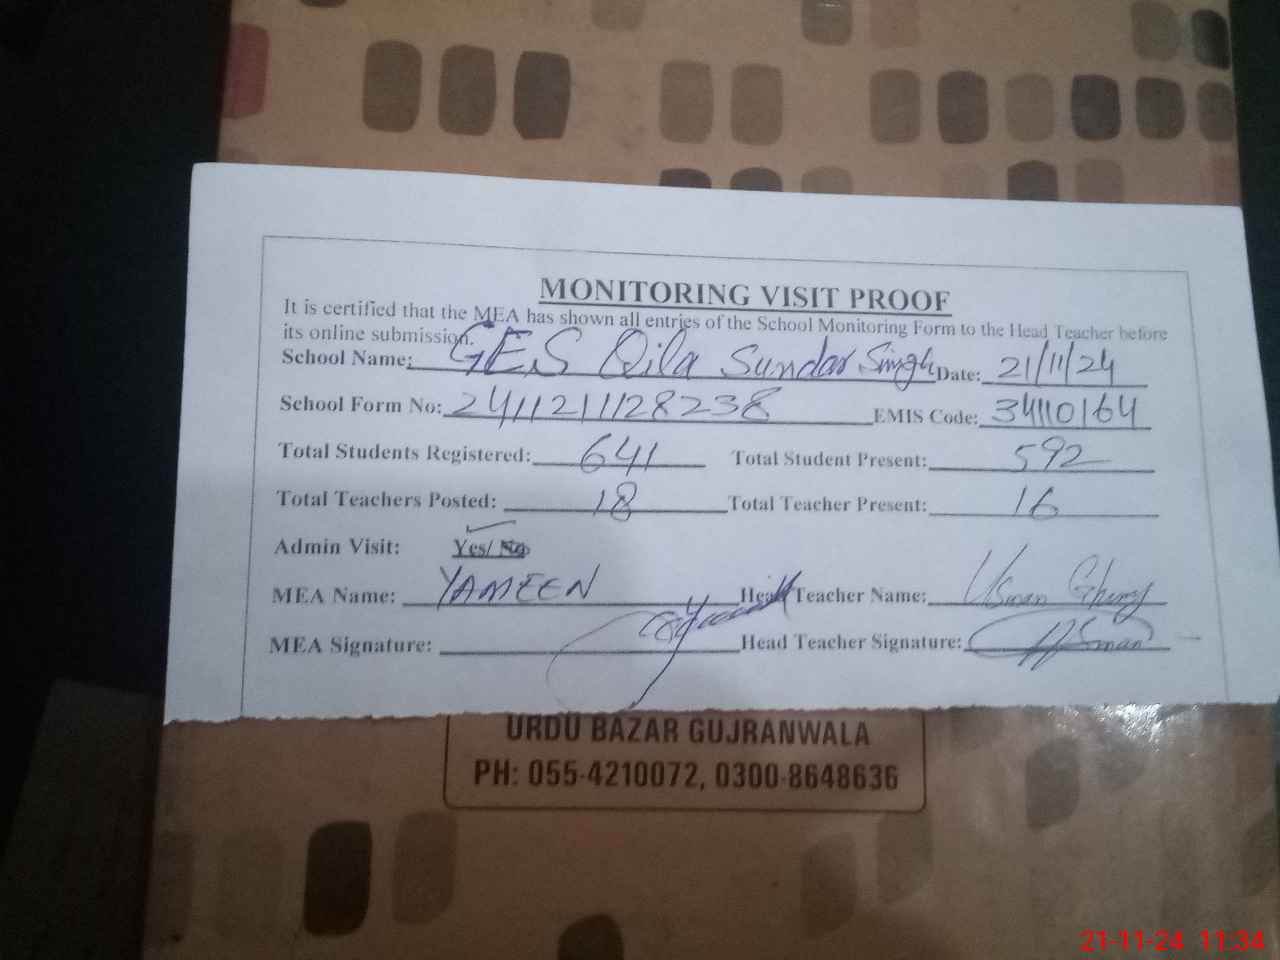 MONITORING VISIT PROOF
It is certified that the MEA has shown all entries of the School Monitoring Form to the Head Teacher before
its online submission.
School Name: GES Qila Sundar Singh Date: 21/11/24
School Form No: 2411211128238 EMIS Code: 34110164
Total Students Registered: 641 Total Student Present: 592
Total Teachers Posted: 18 Total Teacher Present: 16
Admin Visit: Yes/ No
MEA Name: YAMEEN Head Teacher Name: Usman
MEA Signature: Head Teacher Signature: Usman
URDU BAZAR GUJRANWALA
PH: 055-4210072, 0300-8648636
21-11-24 11:34